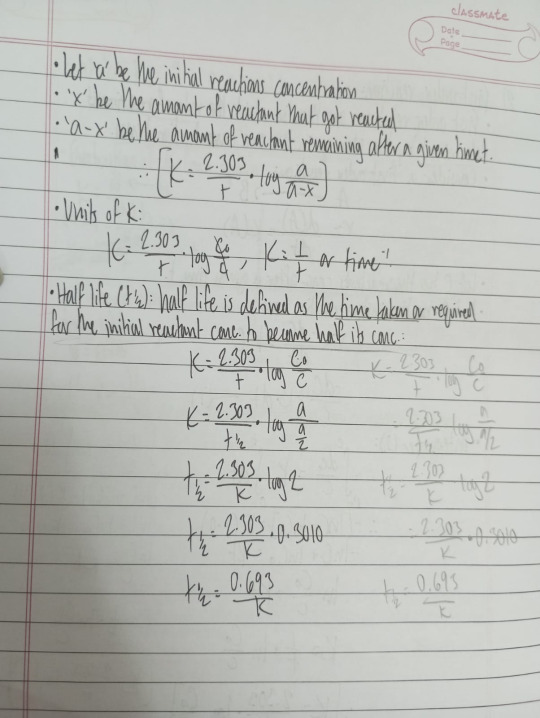 classmate
Date
Page
• Let 'a' be the initial reactions concentration
• 'x' be the amount of reactant that got reacted
• 'a-x' be the amount of reactant remaining after a given time t.
∴ [K = 2.303/t · log a/a-x]
• Units of K:
K = 2.303/t · log C₀/C, K = 1/t or time⁻¹
• Half life (t½): half life is defined as the time taken or required
for the initial reactant conc. to become half its conc.:
K = 2.303/t · log C₀/C K = 2.303/t · log C₀/C
K = 2.303/t½ · log a/(a/2) = 2.303/t½ log a/a/2
t½ = 2.303/K · log 2 t½ = 2.303/K · log 2
t½ = 2.303/K · 0.3010 = 2.303/K · 0.3010
t½ = 0.693/K t½ = 0.693/K